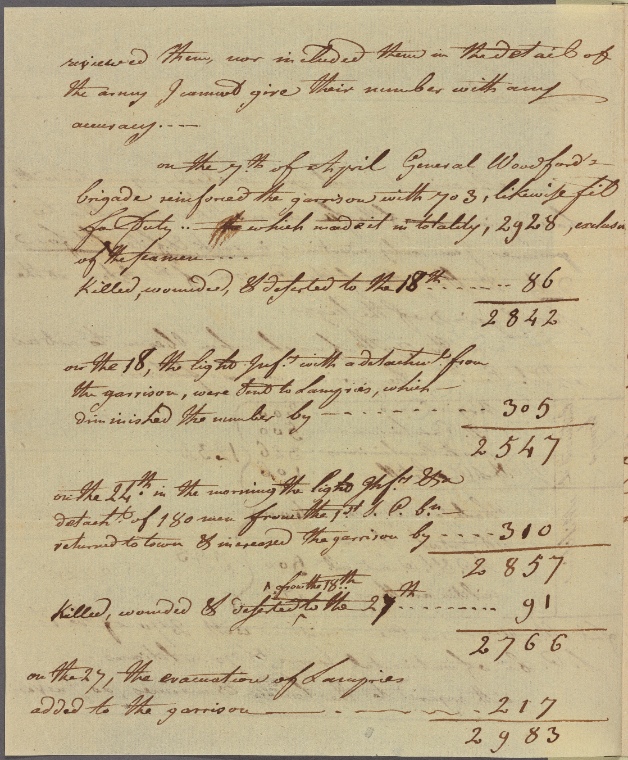 reviewed them, nor included them in the detail of
the army I cannot give their number with any
accuracy.---
on the 7th of April General Woodford's
brigade reinforced the garrison with 703, likewise fit
for Duty .. which made it in totality, 2928, exclusiv
of the seamen ----
Killed, wounded, & deserted to the 18th ------- 86
2842
on the 18, the light Inf.y with a detachmt. from
the garrison, were sent to Lampries, which
diminished the number by ---------- 305
2547
on the 24th. in the morning the light Inf.ry & a
detacht. of 180 men from the 1st S. C. bn
returned to town & increased the garrison by ---- 310
2857
from the 18th
Killed, wounded & deserted to the 27th --------- 91
2766
on the 27, the evacuation of Lampries
added to the garrison --------- 217
2983